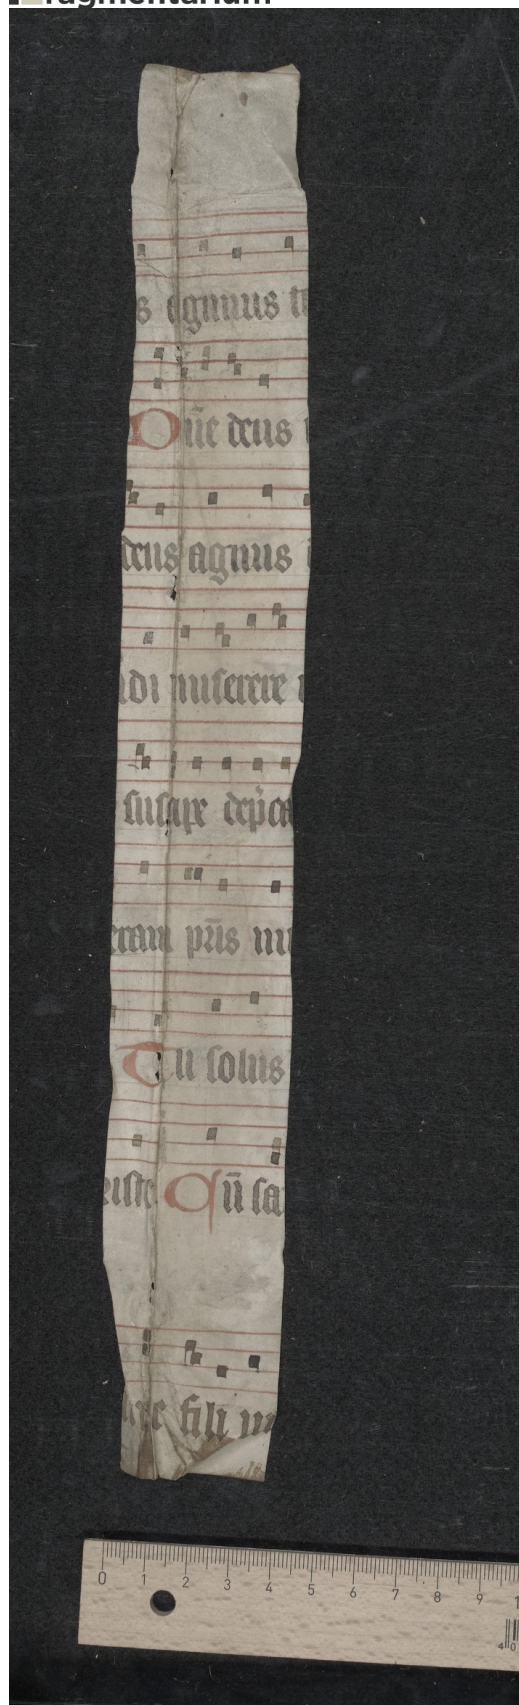 fragmentarium
s agimus ti
Dñe deus
deus agnus
ndi miserere
suscipe dep̄ca
eram p̄ris mi
Tu solus
riste Qm̄ sa
fili un
0 1 2 3 4 5 6 7 8 9 1